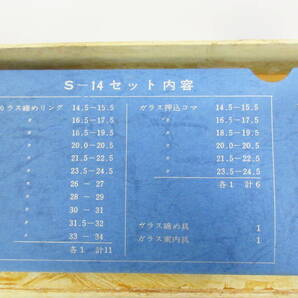 S-14セット内容
ガラス締めリング 14.5-15.5
〃 16.5-17.5
〃 18.5-19.5
〃 20.0-20.5
〃 21.5-22.5
〃 23.5-24.5
〃 26-27
〃 28-29
〃 30-31
〃 31.5-32
〃 33-34
各1 計11
ガラス押込コマ 14.5-15.5
〃 16.5-17.5
〃 18.5-19.5
〃 20.0-20.5
〃 21.5-22.5
〃 23.5-24.5
各1 計6
ガラス締め具 1
ガラス案内具 1